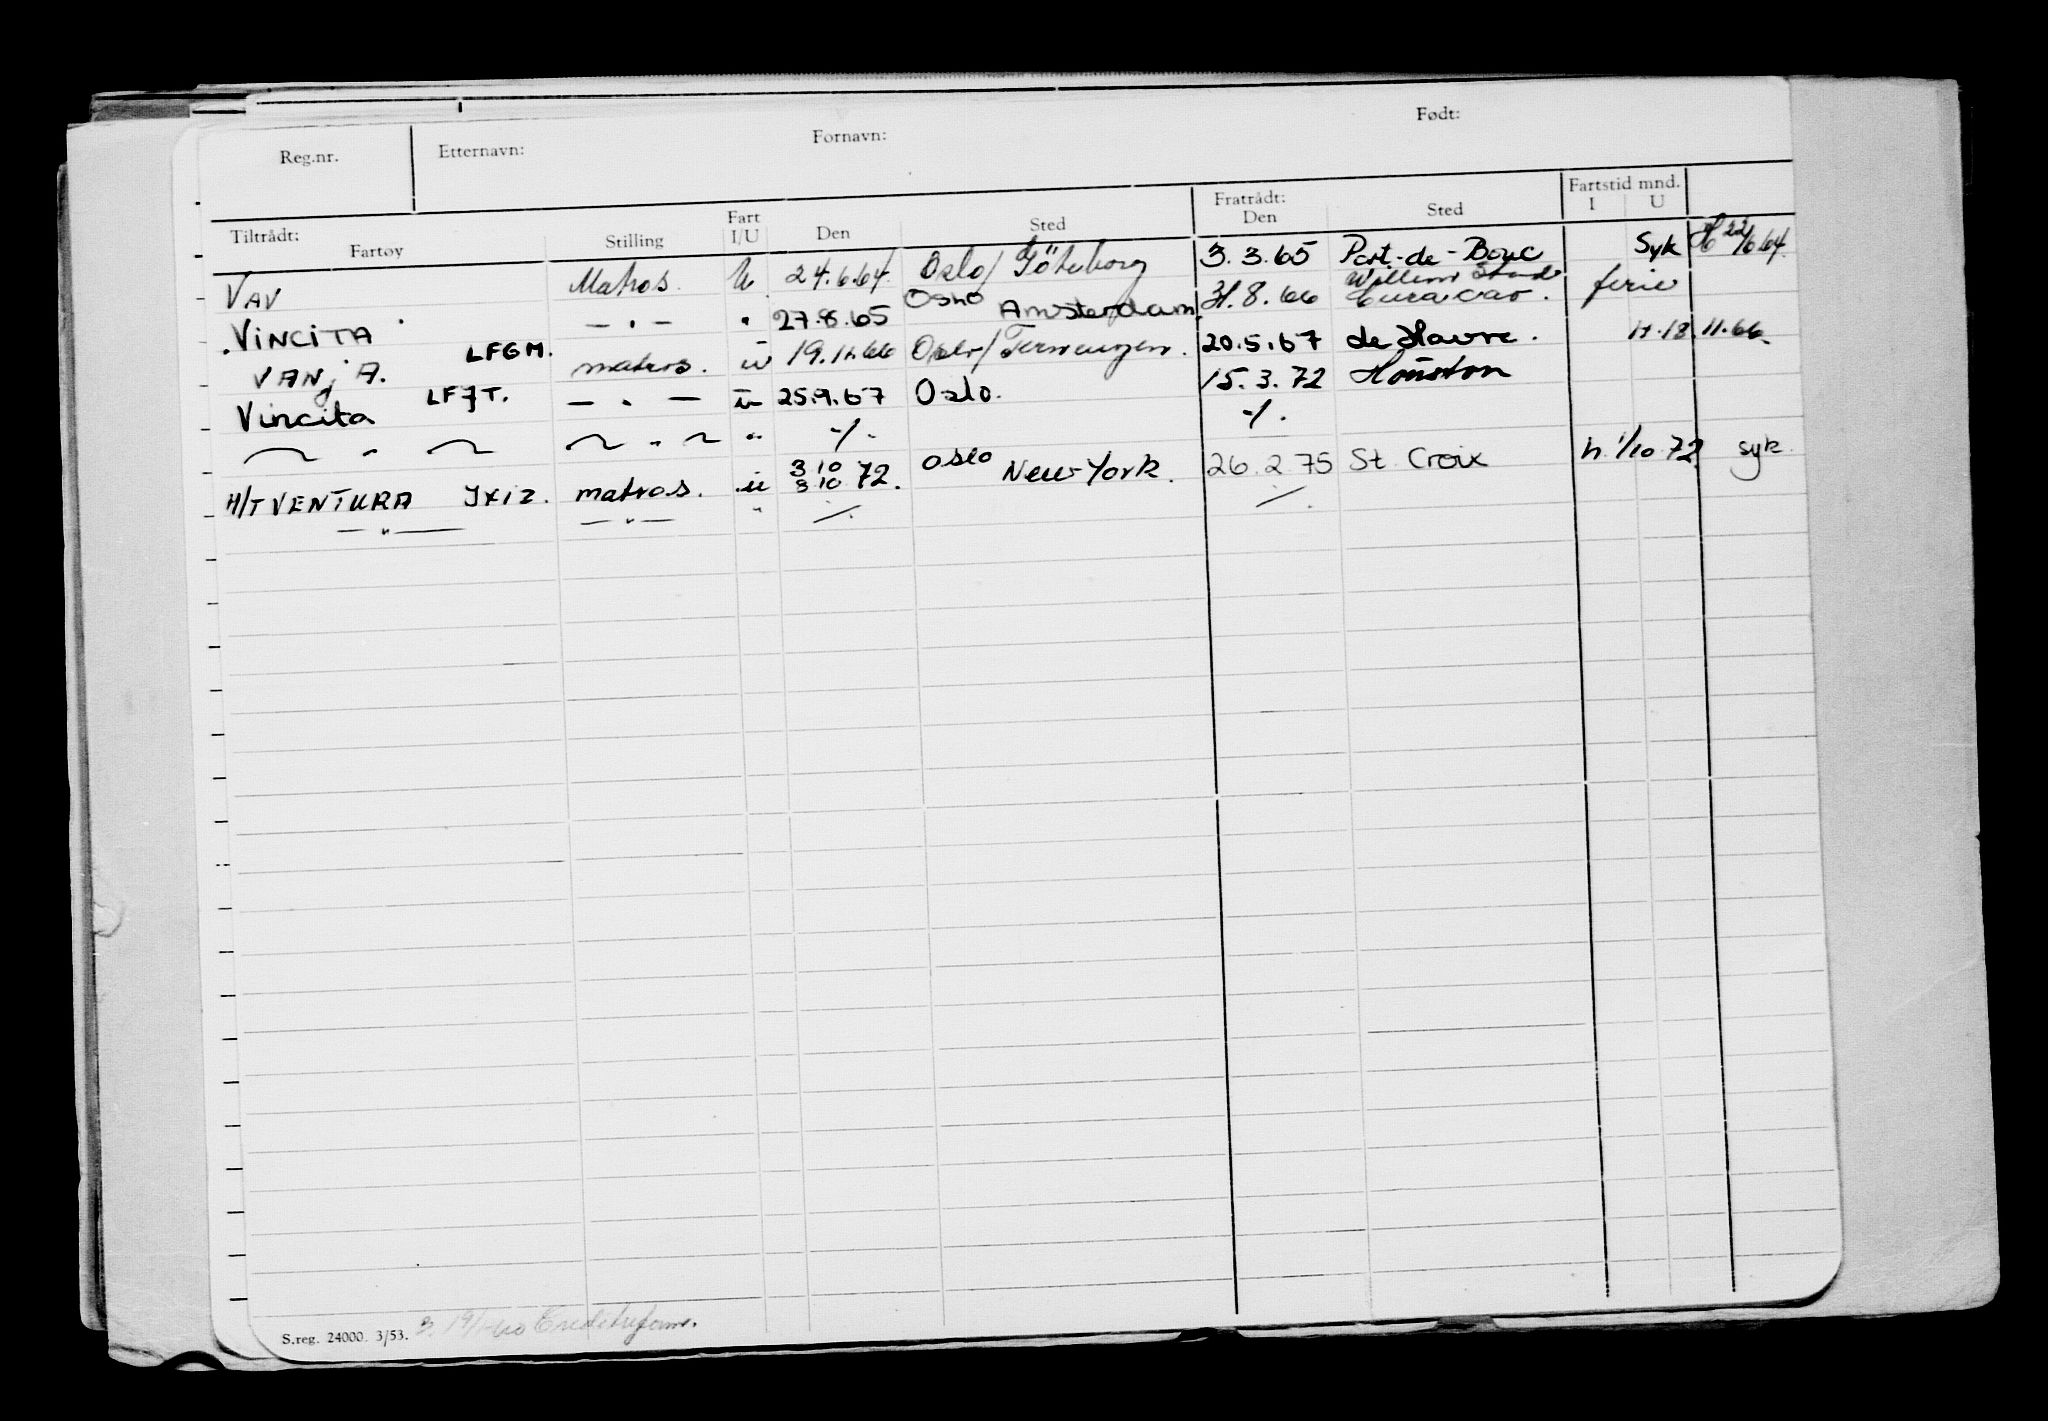 Reg.nr. Etternavn: Fornavn: Født:
Tiltrådt: Fartøy Stilling Fart I/U Den Sted Fratrådt: Den Sted Fartstid mnd. I U
VAV Matros. U. 24.6.64. Oslo/Göteborg 3.3.65 Port-de-Bouc Syk H 22/6.64.
VINCITA — " — " 27.8.65 Oslo Amsterdam. 31.8.66 Willemstad Curacao. ferie
VANJA. LFGM. matros. u 19.11.66 Oslo/ 20.5.67 Le Havre. H.18.11.66.
Vincita LFJT. — " — u 25.9.67 Oslo. 15.3.72 Houston
— " — — " — " -/. -/.
M/T VENTURA JXIZ. matros. u 3 10 3 10 72. Oslo New-York. 26.2.75 St. Croix h. 1/10 72 syk.
— " — — " — " /. /.
S.reg. 24000. 3/53.